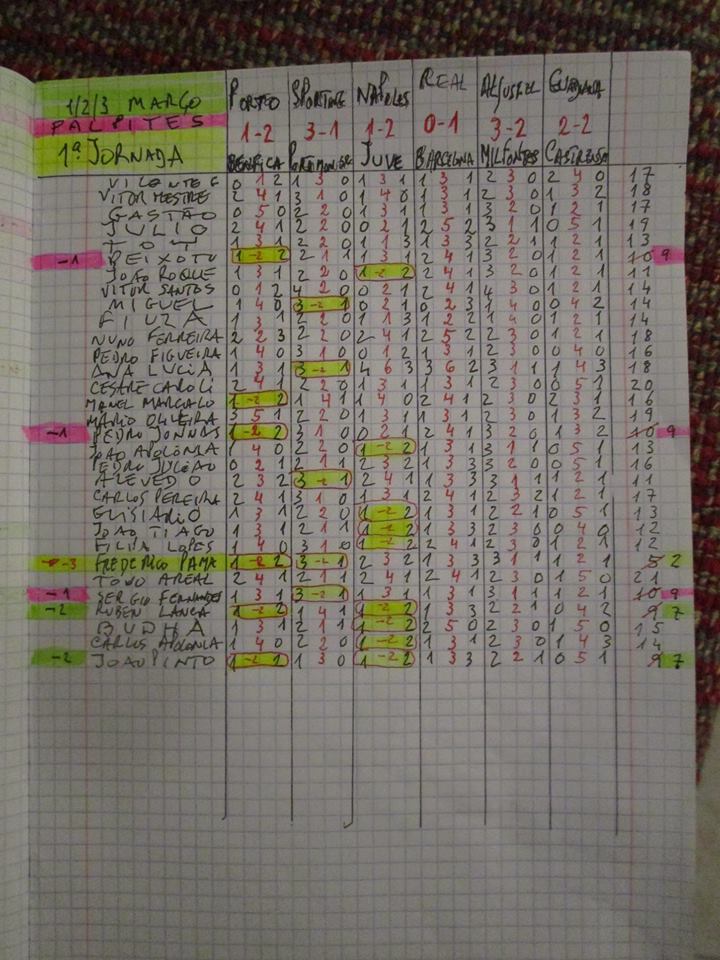 1/2/3 MARÇO PORTO SPORTING NAPOLES REAL ALJUSTREL GUADIANA
PALPITES 1-2 3-1 1-2 0-1 3-2 2-2
1ª JORNADA BENFICA PORTIMONENSE JUVE BARCELONA MILFONTES CASTRENSE
VICENTE G 0 1 2 1 3 0 1 3 1 1 3 1 2 3 0 2 4 0 17
VITOR MESTRE 2 4 1 3 1 0 1 4 0 1 3 1 2 3 0 1 3 2 18
GASTÃO 0 5 0 2 2 0 1 3 1 1 3 1 3 2 0 1 2 1 17
JULIO 2 4 1 2 2 0 0 2 1 2 5 2 3 1 1 0 5 1 19
TOY 1 3 1 2 2 0 1 1 3 1 3 3 2 2 1 1 2 1 13
-1 PEIXOTO 1 -2 2 2 1 1 1 3 1 2 4 1 3 2 0 1 2 1 10 9
JOAO ROQUE 1 3 1 2 2 0 1 -2 2 2 4 1 3 2 0 1 2 1 11
VITOR SANTOS 0 1 2 4 2 0 0 2 1 2 4 1 4 3 0 1 2 1 14
MIGUEL 1 4 0 3 -2 1 0 2 1 0 2 3 1 4 0 0 4 2 14
FIUZA 1 3 1 2 2 0 1 1 3 1 2 2 1 4 0 1 2 1 14
NUNO FERREIRA 2 2 3 2 2 0 2 4 1 2 5 2 2 3 0 1 2 1 18
PEDRO FIGUEIRA 1 4 0 3 1 0 0 1 2 1 3 1 2 3 0 0 4 0 16
ANA LUCIA 1 3 1 3 -2 1 4 6 3 3 6 2 3 1 1 1 4 3 18
CESTRE CAROLI 2 4 1 2 2 0 1 3 1 1 3 1 2 3 0 0 5 1 20
MANEL MARCALO 1 -2 2 1 4 1 1 4 0 2 4 1 2 3 0 2 3 1 16
MARIO OLIVEIRA 3 5 1 2 2 0 1 3 1 1 3 1 2 3 0 1 3 2 19
-1 PEDRO JONNAS 1 -2 2 3 1 0 0 2 1 2 4 1 3 2 0 1 3 2 10 9
JOAO APOLONIA 1 4 0 2 2 0 1 -2 2 1 3 1 3 1 1 0 5 1 13
PEDRO JULIÃO 0 2 1 2 1 1 2 3 2 1 3 3 3 2 0 0 5 1 16
AZEVEDO 2 3 2 3 -2 1 2 4 1 1 3 3 3 1 1 1 2 1 11
CARLOS PEREIRA 2 4 1 3 1 0 1 3 1 2 4 1 2 3 2 1 2 1 17
ELISIÁRIO 1 3 1 2 2 0 1 -2 2 1 3 1 2 2 1 0 5 1 13
JOÃO TIAGO 1 3 1 2 1 1 1 -2 2 1 3 3 2 3 0 0 4 0 12
FILIPA LOPES 1 4 0 3 1 0 1 -2 2 2 4 1 2 3 0 1 2 1 12
-3 FREDERICO PAMA 1 -2 2 3 -2 1 2 3 2 1 3 3 3 1 1 1 2 1 5 2
TONO AREAL 2 4 1 2 1 1 2 4 1 2 4 1 2 3 0 1 5 0 21
-1 SERGIO FERNANDES 1 3 1 3 -2 1 1 3 1 1 3 1 3 1 1 1 2 1 10 9
-2 RUBEN LANÇA 1 -2 2 1 4 1 1 -2 2 1 3 3 2 2 1 0 4 2 9 7
BUDHA 1 3 1 2 1 1 1 -2 2 2 5 0 2 3 0 1 5 0 15
CARLOS APOLONIA 1 4 0 2 2 0 1 -2 2 1 3 1 2 3 0 1 4 3 14
-2 JOAO PINTO 1 -2 2 1 3 0 1 -2 2 1 3 3 2 2 1 0 5 1 9 7